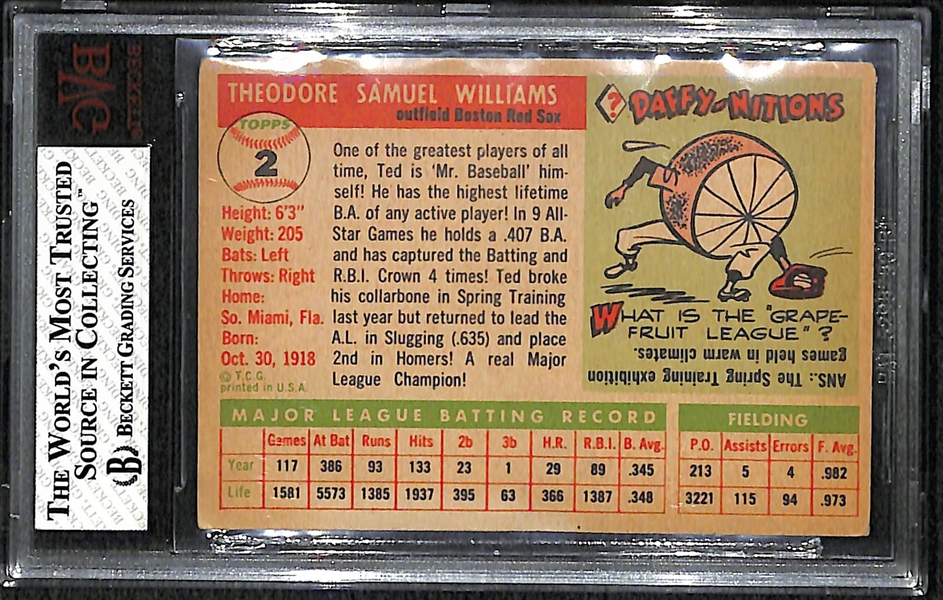 BECKETT
BVG
THE WORLD'S MOST TRUSTED
SOURCE IN COLLECTING™
BECKETT GRADING SERVICES
THEODORE SAMUEL WILLIAMS
outfield Boston Red Sox
TOPPS
2
Height: 6'3"
Weight: 205
Bats: Left
Throws: Right
Home:
So. Miami, Fla.
Born:
Oct. 30, 1918
© T.C.G.
printed in U.S.A.
One of the greatest players of all
time, Ted is 'Mr. Baseball' him-
self! He has the highest lifetime
B.A. of any active player! In 9 All-
Star Games he holds a .407 B.A.
and has captured the Batting and
R.B.I. Crown 4 times! Ted broke
his collarbone in Spring Training
last year but returned to lead the
A.L. in Slugging (.635) and place
2nd in Homers! A real Major
League Champion!
? DAFFY-NITIONS
WHAT IS THE "GRAPE-
FRUIT LEAGUE"?
ANS.: The Spring Training exhibition
games held in warm climates.
MAJOR LEAGUE BATTING RECORD
Games At Bat Runs Hits 2b 3b H.R. R.B.I. B. Avg.
Year 117 386 93 133 23 1 29 89 .345
Life 1581 5573 1385 1937 395 63 366 1387 .348
FIELDING
P.O. Assists Errors F. Avg.
213 5 4 .982
3221 115 94 .973